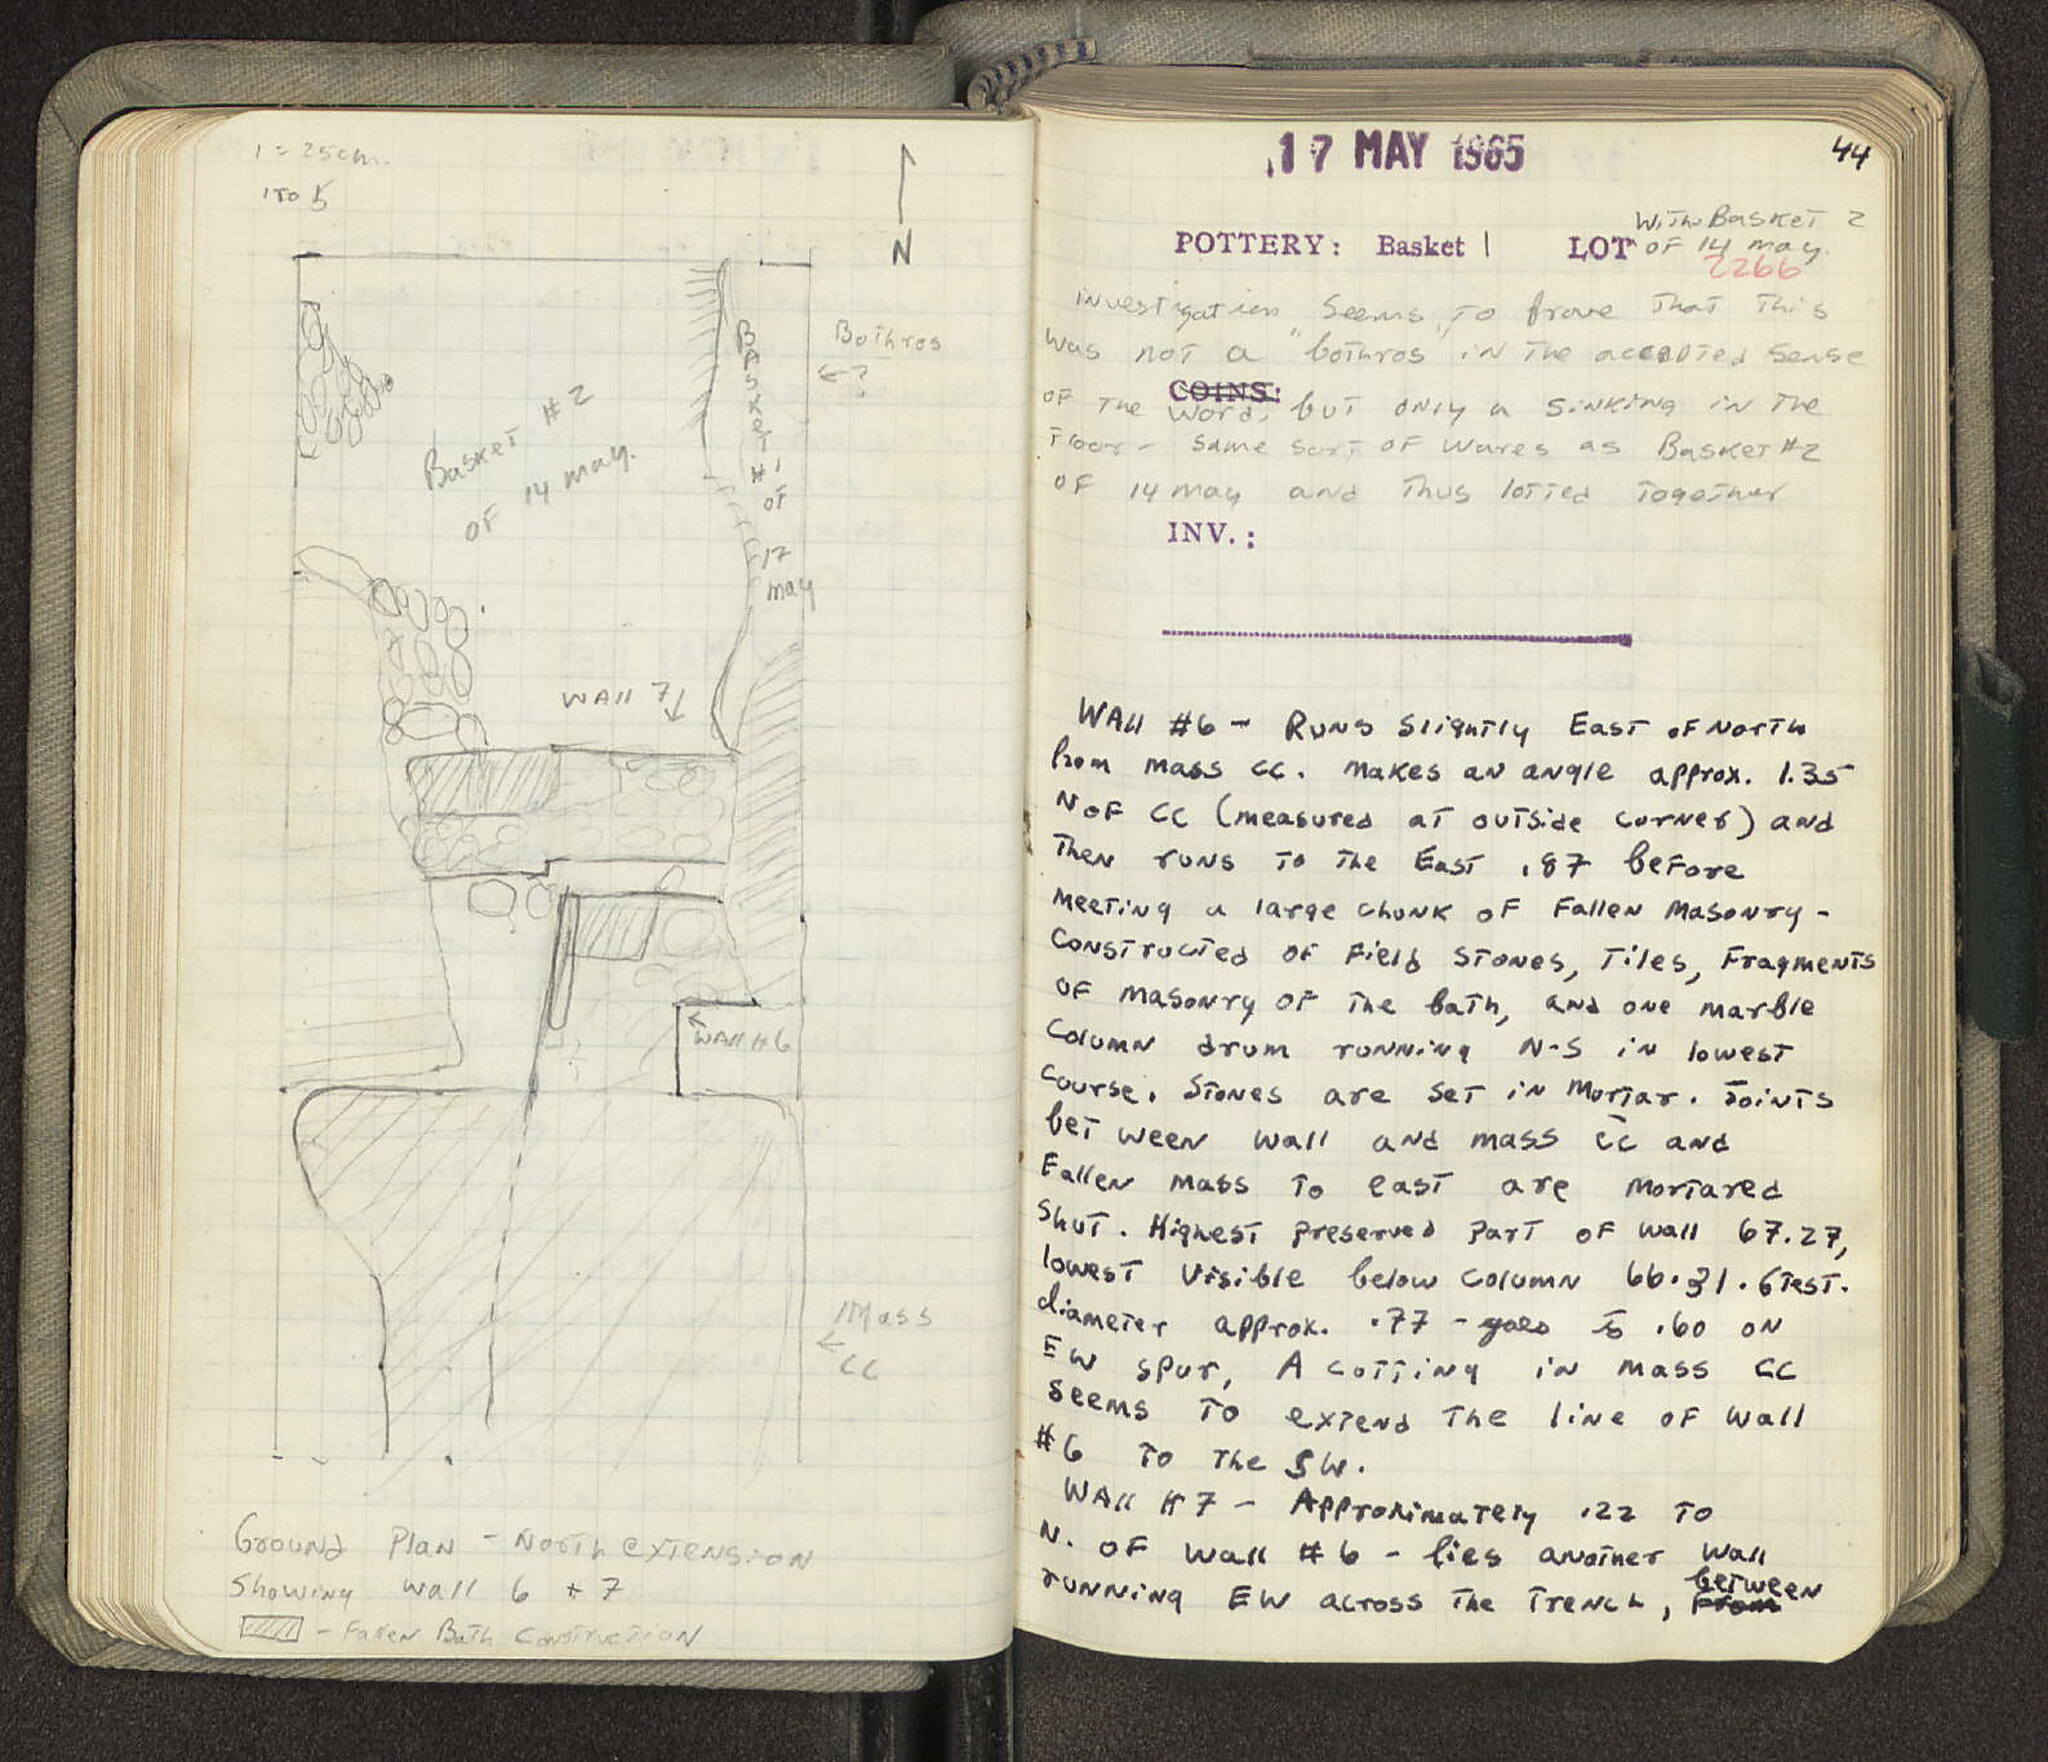 1 = 25cm.
1 TO 5
N
Bothros
←?
Basket #2
OF 14 may.
Basket
#1
OF
17
may
WAll 7↓
←
WAll #6
Mass
←
CC
Ground Plan - North extension
Showing wall 6 + 7
- Fallen Bath Construction
17 MAY 1965
44
With Basket 2
POTTERY: Basket 1 LOT OF 14 may.
2266
investigation seems to prove that this
was not a "bothros" in the accepted sense
COINS:
of the word, but only a sinking in the
floor - same sort of wares as Basket #2
of 14 may and thus lotted together
INV.:
WAll #6 - Runs slightly East of North
from mass CC. Makes an angle approx. 1.35
N of CC (measured at outside corner) and
then runs to the East .87 before
meeting a large chunk of fallen masonry -
Constructed of field stones, tiles, fragments
of masonry of the bath, and one marble
column drum running N-S in lowest
course. Stones are set in mortar. Joints
between wall and mass CC and
Fallen mass to east are mortared
shut. Highest preserved part of wall 67.27,
lowest visible below column 66.31. Gtest.
diameter approx. .77 - goes to .60 on
EW spur, A cutting in mass CC
seems to extend the line of wall
#6 to the SW.
WAll #7 - Approximately .22 to
N. of wall #6 - lies another wall
between
running EW across the trench, from